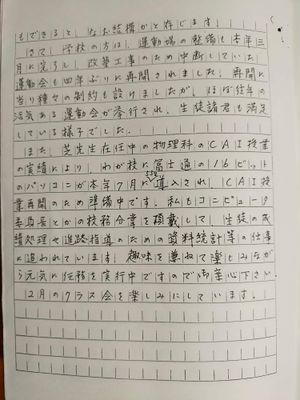 もできると、なお結構かと存じます。
さて、学校の方は、運動場の整備も本年三
月に完了し、改築工事のため中断していた
運動会も四年ぶりに再開されました。再開に
当り種々の制約も設けましたが、ほぼ往年の
活気ある運動会が挙行され、生徒諸君も満足
している様子でした。
また、芝先生在任中の物理科のCAI授業
の実績により、わが校に富士通の16ビット
のパソコンが本年7月に導入され、CAI授
業再開のため準備中です。私もコンピュータ
委員長とかの校務分掌を頂戴して、生徒の成
績処理や進路指導のための資料統計等の仕事
に追われています。趣味を兼ねて楽しみなが
ら元気に任務を実行中ですので御安心下さい。
12月のクラス会を楽しみにしています。